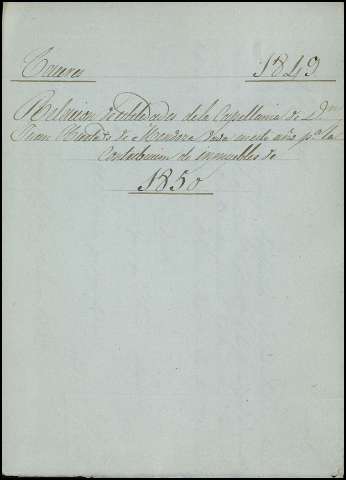 Caceres 1849
Relacion de utilidades de la Capellania de Dn
Juan de Mendoza dada en este año pa la
Contribucion de inmuebles de
1850